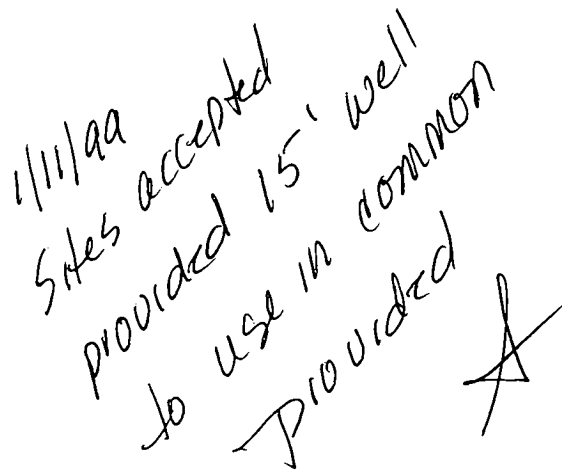 1/11/99
Sites accepted
provided 15' well
to use in common
provided